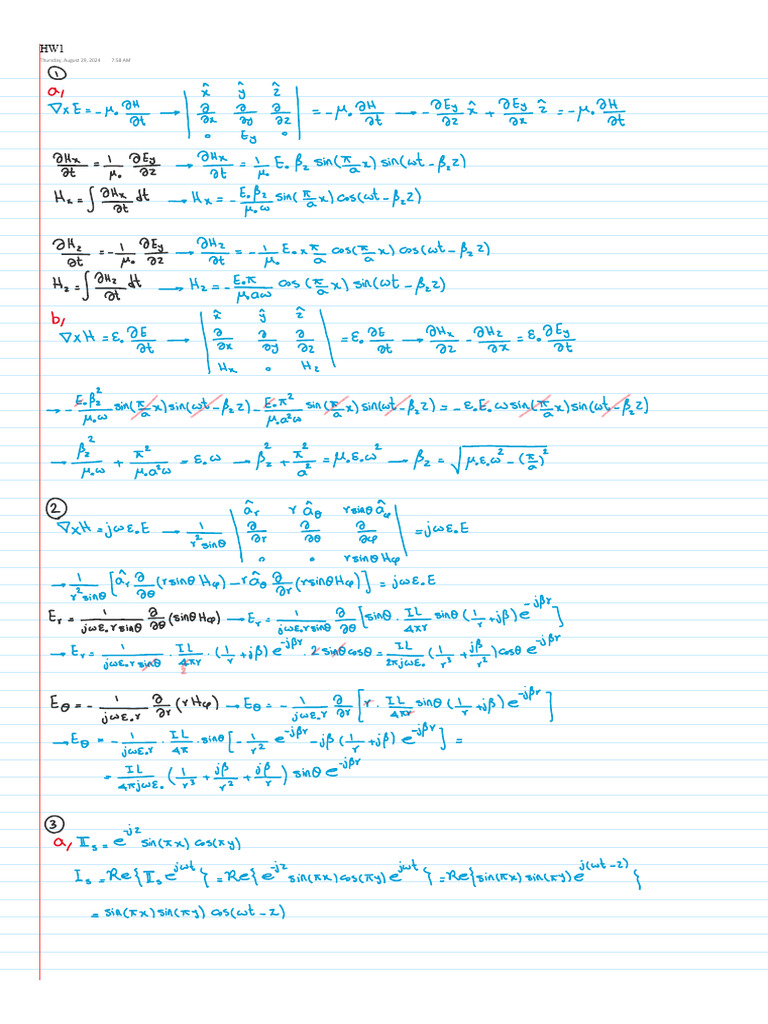 HW1
Thursday, August 29, 2024 7:58 AM
①
a,
∇×E = -μ∘ ∂H/∂t → | x̂ ŷ ẑ ; ∂/∂x ∂/∂y ∂/∂z ; ∘ Ey ∘ | = -μ∘ ∂H/∂t → -∂Ey/∂z x̂ + ∂Ey/∂x ẑ = -μ∘ ∂H/∂t
∂Hx/∂t = 1/μ∘ ∂Ey/∂z → ∂Hx/∂t = 1/μ∘ E∘ βz sin(π/a x) sin(ωt - βz z)
Hx = ∫ ∂Hx/∂t dt → Hx = - E∘βz/μ∘ω sin(π/a x) cos(ωt - βz z)
∂Hz/∂t = -1/μ∘ ∂Ey/∂z → ∂Hz/∂t = -1/μ∘ E∘ × π/a cos(π/a x) cos(ωt - βz z)
Hz = ∫ ∂Hz/∂t dt → Hz = - E∘π/μ∘aω cos(π/a x) sin(ωt - βz z)
b,
∇×H = ε∘ ∂E/∂t → | x̂ ŷ ẑ ; ∂/∂x ∂/∂y ∂/∂z ; Hx ∘ Hz | = ε∘ ∂E/∂t → ∂Hx/∂z - ∂Hz/∂x = ε∘ ∂Ey/∂t
→ - E∘βz²/μ∘ω sin(π/a x) sin(ωt - βz z) - E∘π²/μ∘a²ω sin(π/a x) sin(ωt - βz z) = -ε∘E∘ω sin(π/a x) sin(ωt - βz z)
→ βz²/μ∘ω + π²/μ∘a²ω = ε∘ω → βz² + π²/a² = μ∘ε∘ω² → βz = √(μ∘ε∘ω² - (π/a)²)
②
∇×H = jωε∘E → 1/r²sinθ | âr r âθ r sinθ âφ ; ∂/∂r ∂/∂θ ∂/∂φ ; ∘ ∘ r sinθ Hφ | = jωε∘E
→ 1/r²sinθ [âr ∂/∂θ (r sinθ Hφ) - r âθ ∂/∂r (r sinθ Hφ)] = jωε∘E
Er = 1/jωε∘r sinθ ∂/∂θ (sinθ Hφ) → Er = 1/jωε∘r sinθ ∂/∂θ [sinθ · IL/4πr sinθ (1/r + jβ) e^-jβr]
→ Er = 1/jωε∘r sinθ · IL/4πr · (1/r + jβ) e^-jβr · 2 sinθ cosθ = IL/2πjωε∘ (1/r³ + jβ/r²) cosθ e^-jβr
2
Eθ = - 1/jωε∘r ∂/∂r (r Hφ) → Eθ = - 1/jωε∘r ∂/∂r [r · IL/4πr sinθ (1/r + jβ) e^-jβr]
→ Eθ = - 1/jωε∘r · IL/4π · sinθ [- 1/r² e^-jβr - jβ (1/r + jβ) e^-jβr] =
= IL/4πjωε∘ (1/r³ + jβ/r² + jβ/r) sinθ e^-jβr
③
a, 𝕀s = e^-jz sin(πx) cos(πy)
Is = Re{𝕀s e^jωt} = Re{e^-jz sin(πx) cos(πy) e^jωt} = Re{sin(πx) sin(πy) e^j(ωt-z)}
= sin(πx) sin(πy) cos(ωt - z)